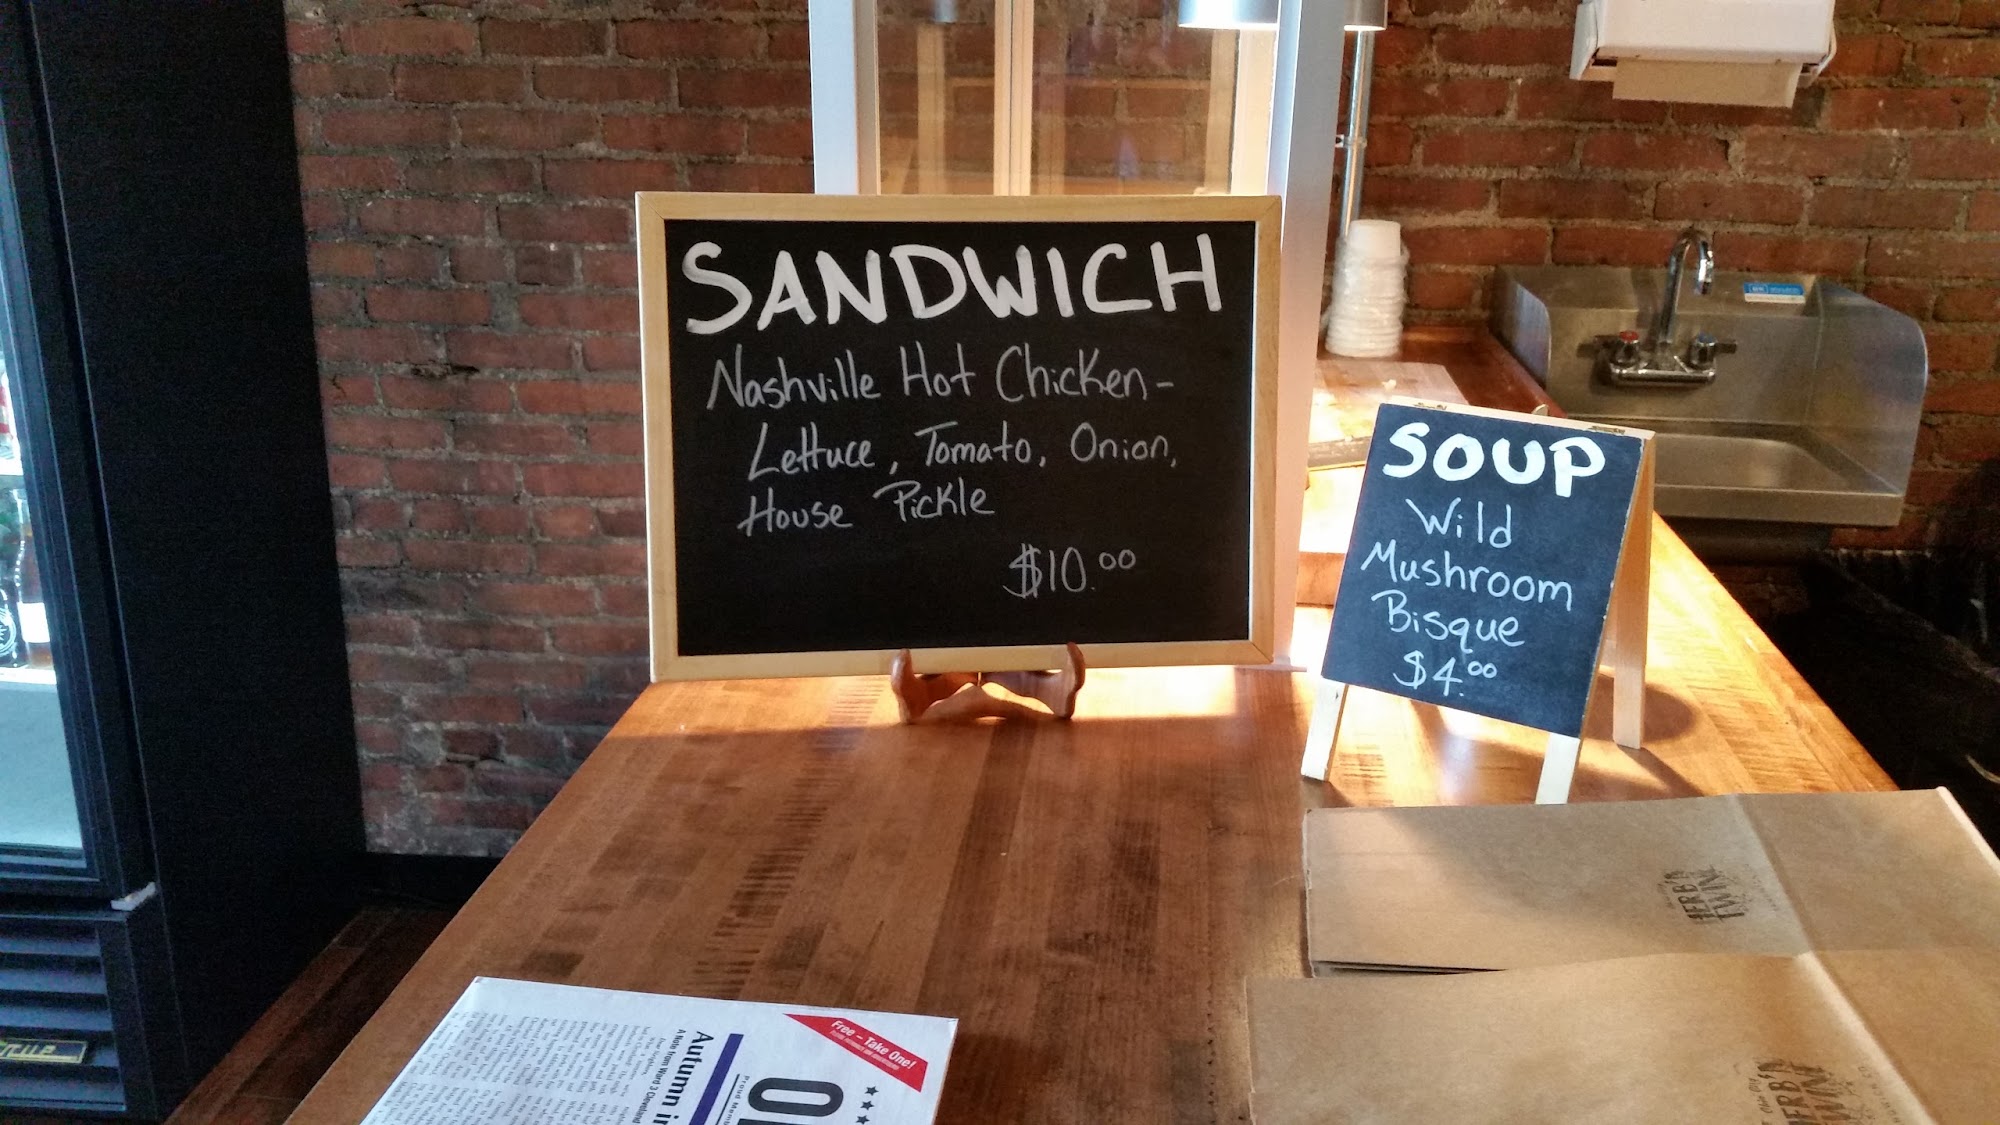 SANDWICH
Nashville Hot Chicken -
Lettuce, Tomato, Onion,
House Pickle
$10.00
SOUP
Wild
Mushroom
Bisque
$4.00
HERB'N
TWINE
HERB'N
TWINE
Free – Take One!
Autumn i
A Note from Ward 3 Cleveland
True